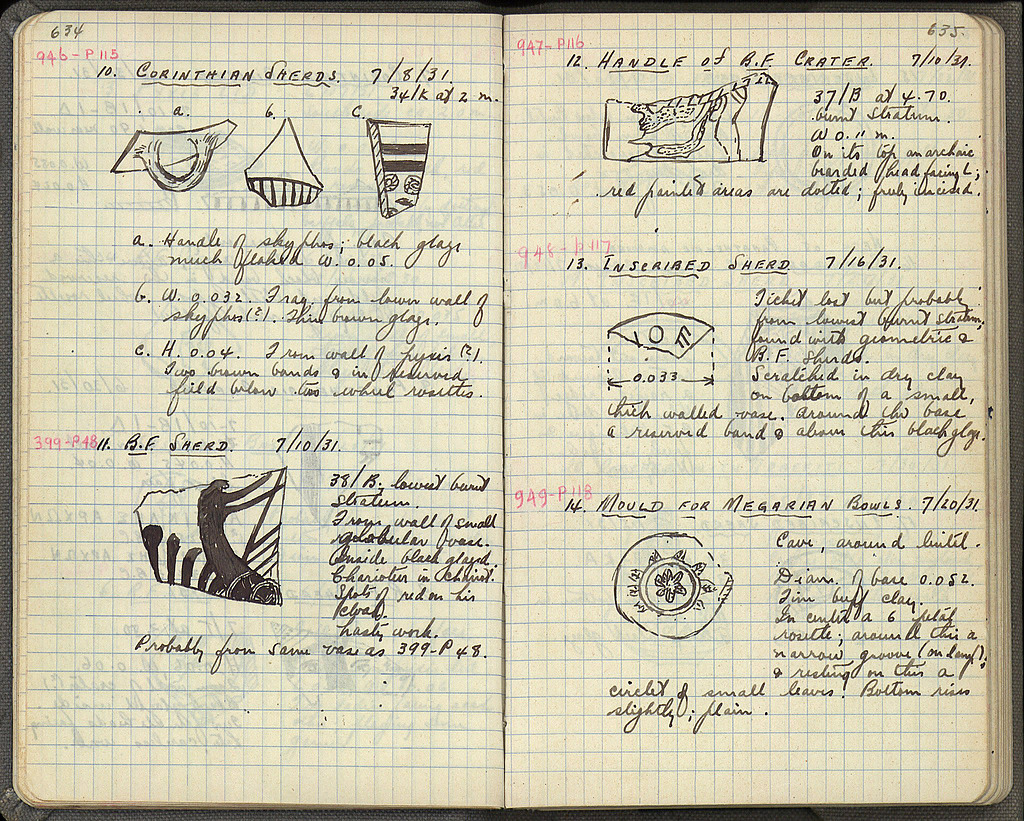 634
946-P115
10. CORINTHIAN SHERDS. 7/8/31.
34/K at 2 m.
a. b. c.
a. Handle of skyphos; black glaze
much flaked W. 0.05.
b. W. 0.032. Frag. from lower wall of
skyphos(?). Thin brown glaze.
c. H. 0.04. From wall of pyxis (?).
Two brown bands & in reserved
field below two wheel rosettes.
399-P48
11. B.F. SHERD. 7/10/31.
38/B. lowest burnt
Stratum.
From wall of small
globular vase.
Inside black glazed
Charioteer in chariot.
Spots of red on his
cloak.
hasty work.
Probably from same vase as 399-P48.
635.
947-P116
12. HANDLE of B.F. CRATER. 7/10/31.
37/B at 4.70.
burnt Stratum.
W 0.11 m.
On its top an archaic
bearded head facing L;
red painted areas are dotted; freely incised.
948-P117
13. INSCRIBED SHERD 7/16/31.
Ticket lost but probably
from lowest burnt Stratum;
found with geometric &
B.F. Sherds.
0.033
Scratched in dry clay
on bottom of a small,
thick walled vase. Around the base
a reserved band & above this black glaze.
949-P118
14. MOULD FOR MEGARIAN BOWLS. 7/20/31.
Cave, around lintel.
Diam. of base 0.052.
Fine buff clay.
In center a 6 petal
rosette; around this a
narrow groove
& resting on this a
circlet of small leaves. Bottom rises
slightly; plain.